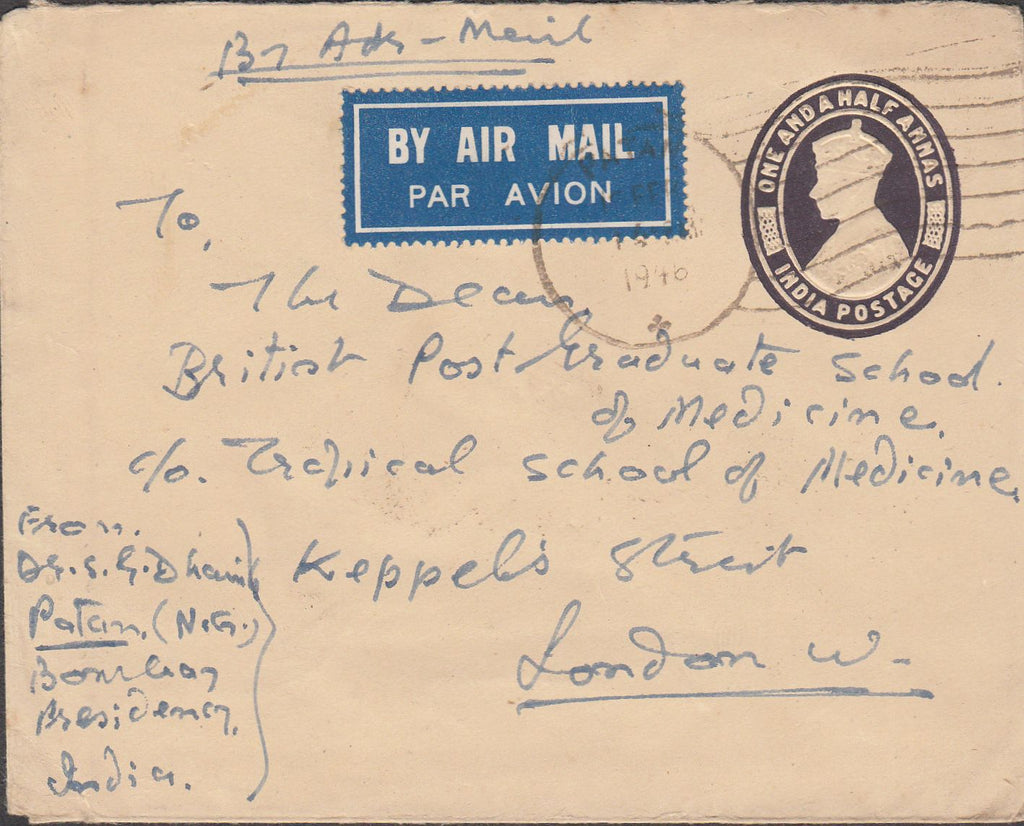 By Air-Mail
BY AIR MAIL
PAR AVION
ONE AND A HALF ANNAS
INDIA POSTAGE
1946
To,
The Dean
British Post Graduate School
of Medicine,
c/o. Tropical School of Medicine,
Keppel's Street
London W-
From.
Dr. S. G.
Patan, (N.G.)
Bombay
Presidency,
India.